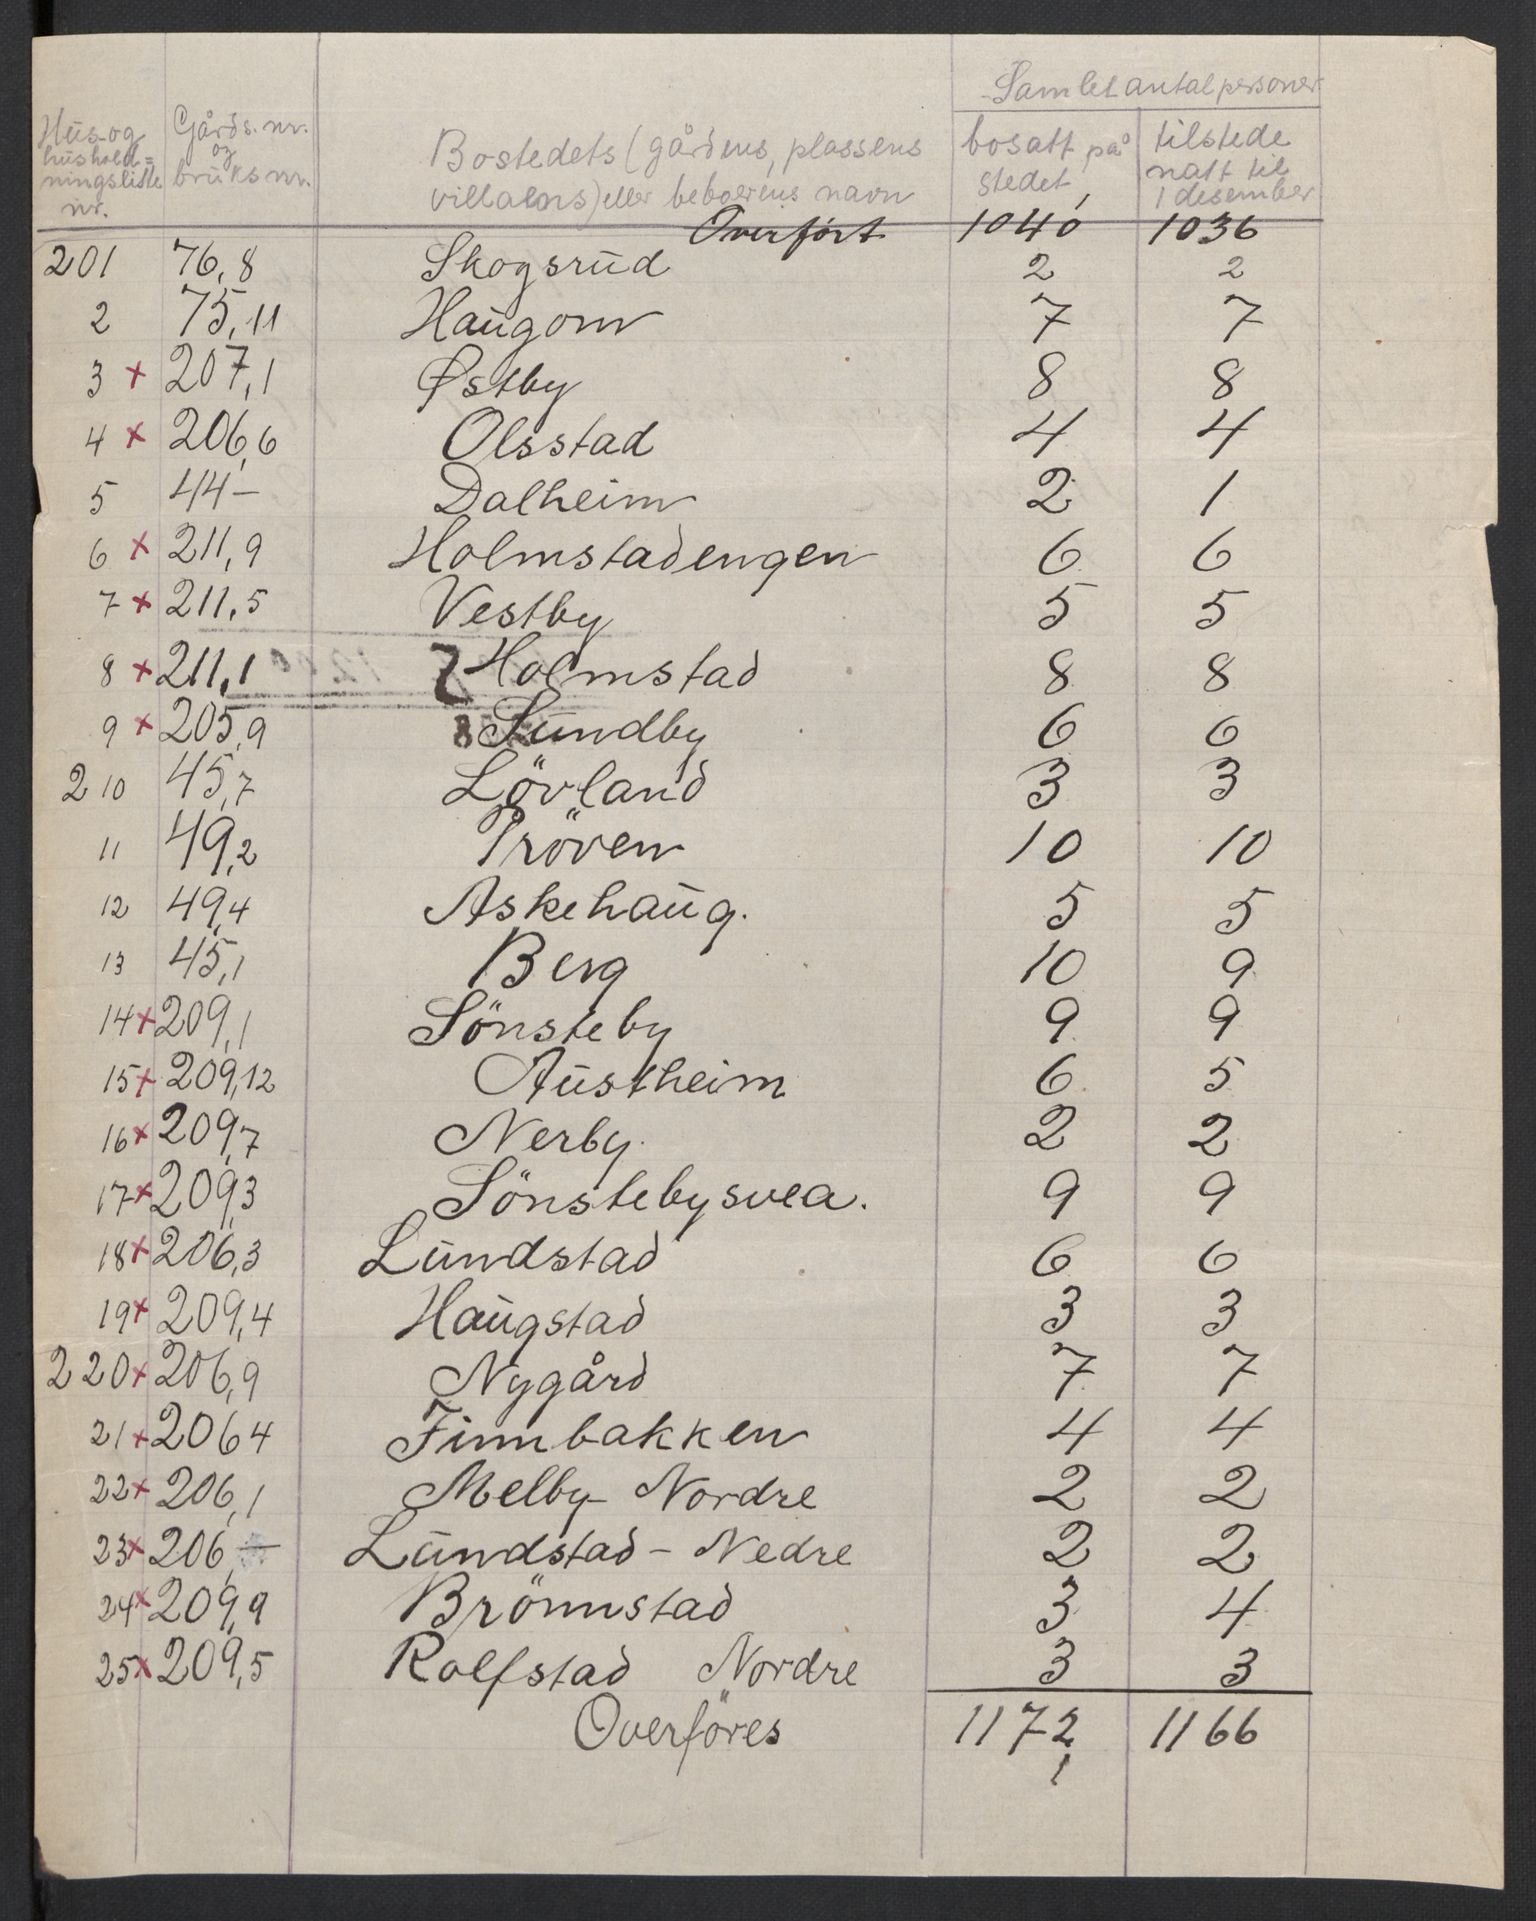 Samlet antal personer
Hus-og husholdningsliste nr. | Gårds.nr. og bruks nr. | Bostedets (gårdens, plassens villaens) eller beboerens navn | bosatt på stedet | tilstede natt til 1 desember
Overført 1040 1036
201 76,8 Skogsrud 2 2
2 75,11 Haugom 7 7
3 x 207,1 Østby 8 8
4 x 206,6 Olsstad 4 4
5 44- Dalheim 2 1
6 x 211,9 Holmstadengen 6 6
7 x 211,5 Vestby 5 5
8 x 211,1 Holmstad 8 8
9 x 205,9 Sundby 6 6
210 45,7 Lövland 3 3
11 49,2 Pröven 10 10
12 49,4 Askehaug. 5 5
13 45,1 Berg 10 9
14 x 209,1 Sönsteby 9 9
15 x 209,12 Austheim 6 5
16 x 209,7 Nerby. 2 2
17 x 209,3 Sönstebysvea. 9 9
18 x 206,3 Lundstad 6 6
19 x 209,4 Haugstad 3 3
220 x 206,9 Nygård 7 7
21 x 206 4 Finnbakken 4 4
22 x 206,1 Melby- Nordre 2 2
23 x 206,- Lundstad - Nedre 2 2
24 x 209,9 Brönnstad 3 4
25 x 209,5 Rolfstad Nordre 3 3
Overföres 1172 1166